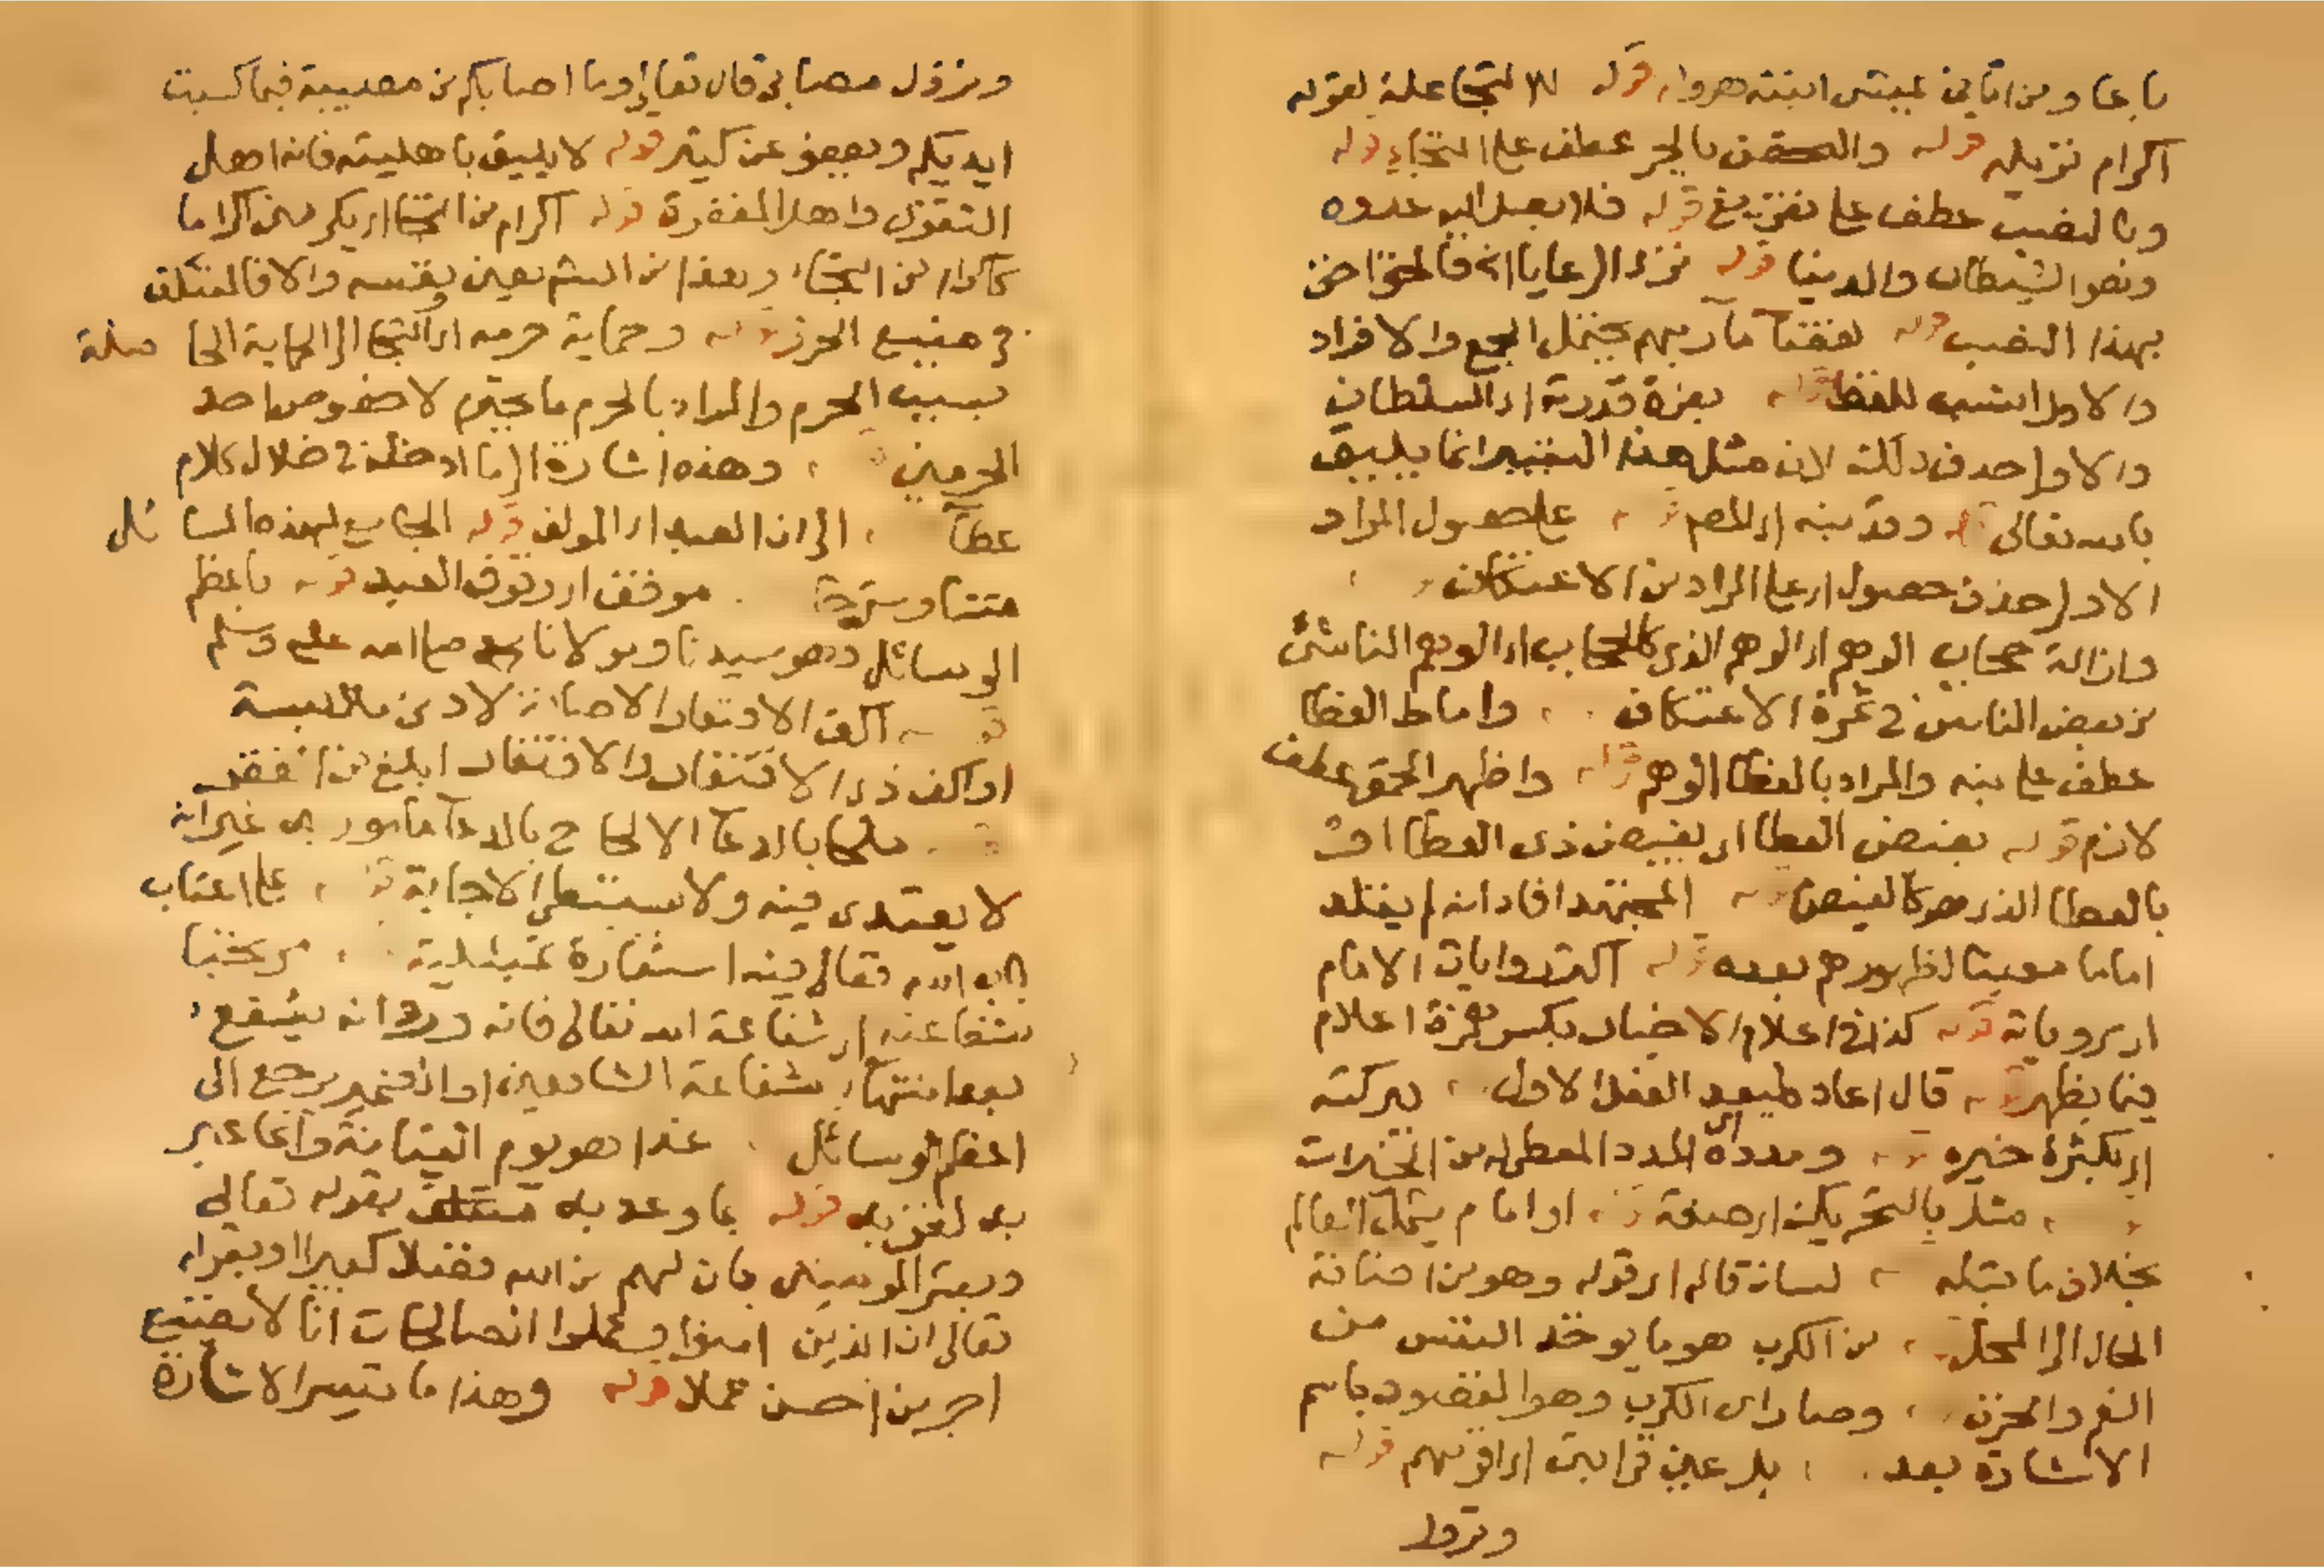 باعا ومن اتاني يمشي اتيته هرولة قوله لالتجا علة لقوله
اكرام نزيله قوله والتحصن بالجر عطف على التجاء قوله
وبالنصب عطف على قوله فلا يصل اليه عدوه
ونحو الشيطان والدنيا قوله
بهذا النصب قوله لفقنا مآربهم يحتمل الجمع والافراد
والاول انسب للفظا قوله بعزة قدرته اي السلطان
والاولى حذف ذلك لان مثل هذا التعبير انما يليق
بالله تعالى وقد نبه اي المص على حصول المراد
الاولى حذف حصول اي على المراد من الاعتكاف
وازالة حجاب الوهم اي الوهم الذي كالحجاب اي الوهم الناشئ
من بعض الناس في ثمرة الاعتكاف واماط الغطا
عطف على نبه والمراد بالغطا الوهم قوله واظهر الحق عطف
لازم قوله بفيض العطا اي بفيض من ذي العطا او
بالعطا الذي هو كالفيض المجتهد افاد انه لم يقلد
اماما معينا لظهورهم بعده قوله اكثر روايات الامام
اي مروياته قوله كذا في اعلام الاخيار بكسر همزة اعلام
فيما يظهر قوله قال اعاده لبعد الفصل الاول بركته
اي بكثرة خيره ومدده اي المدد المعطى له من الخيرات
مثله بالتحريك اي صفة او امام يشمل العالم
بخلاف ما قبله لسان قاله اي قوله وهو من اضافة
الحال الى المحل من الكرب هو ما يوخذ النفس من
الغم والحزن وصار اي الكرب وهو المقصود باسم
الاشارة بعد بل عين قرابتي اي اقربهم قوله
ونزول
ونزول مصابي قال تعالى وما اصابكم من مصيبة فبما كسبت
ايديكم ويعفو عن كثير قوله لا يليق باهليته فانه اهل
التقوى واهل المغفرة قوله اكرام من التجا اي يكرمني اكراما
كاكرام من التجاء وبهذا من
في منيع الحرز قوله وحماية حرمه اي التجا الى الحماية الحاصلة
بسبب الحرم والمراد بالحرم ما يحترم لا خصوص احد
الحرمين وهذه اشارة الى ما ادخلته في خلال كلام
عطا الى ان العبد اي المولف قوله الجامع لهذه المسائل
متنا وشرحا موقف اي وقوف العبد قوله باعظم
الوسائل وهو سيدنا ومولانا محمد صلى الله عليه وسلم
اكف الافتقار الاضافة لادنى ملابسة
او اكف ذي الافتقار والافتقار ابلغ من الفقر
ملحا بالدعا الالحاح بالدعا مامور به غير انه
لا يعتدي فيه ولا يستبطئ الاجابة قوله على اعتاب
باب الله تعالى فيه استعارة تمثيلية مرتجيا
شفاعته اي شفاعة الله تعالى فانه ورد انه يشفع
بعد انتهاء شفاعة الشافعين او الضمير يرجع الى
اعظم الوسائل غدا هو يوم القيامة وانما عبر
به لقربه قوله بما وعد به متعلق بقوله تعالى
وبشر المومنين بان لهم من الله فضلا كبيرا او بقوله
تعالى ان الذين امنوا وعملوا الصالحات انا لا نضيع
اجر من احسن عملا قوله وهذا ما تيسر الاشارة